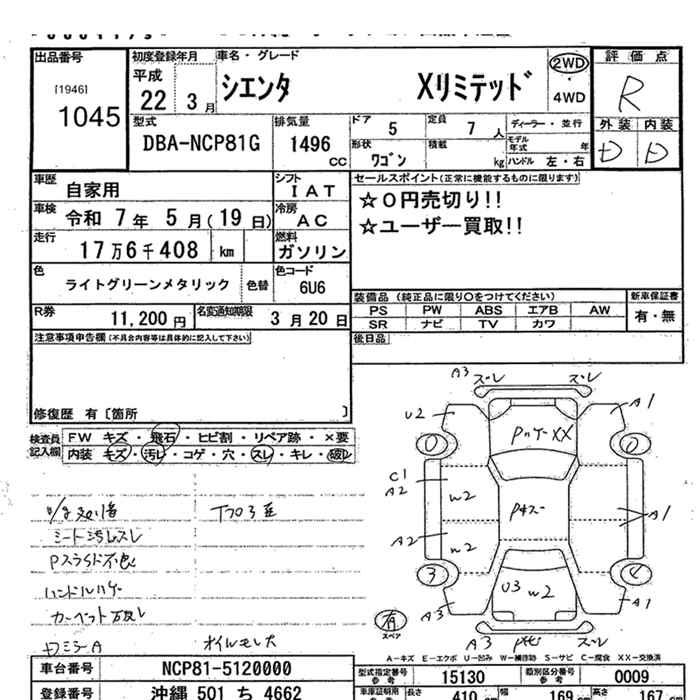 出品番号
[1946]
1045
初度登録年月
平成
22 3月
車名・グレード
シエンタ Xリミテッド
2WD
・
4WD
評価点
R
外装 内装
D D
型式
DBA-NCP81G
排気量
1496 cc
ドア 5
定員 7人
形状 ワゴン
積載 kg
ディーラー・並行
モデル年式 年
ハンドル 左・右
車歴 自家用
シフト IAT
車検 令和 7年 5月(19日)
冷房 AC
走行 17万6千408 km
燃料 ガソリン
色 ライトグリーンメタリック 色替
色コード 6U6
R券 11,200円
名変通知期限 3月20日
セールスポイント(正常に機能するものに限ります)
☆0円売切り!!
☆ユーザー買取!!
装備品 (純正品に限り○をつけてください)
新車保証書
PS PW ABS エアB AW
SR ナビ TV カワ
有・無
後日品
注意事項申告欄(不具合内容等は具体的に記入して下さい)
修復歴 有〔箇所 〕
検査員記入欄
FW キズ・飛石・ヒビ割・リペア跡・×要
内装 キズ・汚レ・コゲ・穴・スレ・キレ・破レ
シート汚レスレ
Pスライド不良
ハンドルハゲ
A3 ズレ ズレ
U2 A1
0 0
XX
C1
A2
W2
A1
A2
W2
3 4
U3 W2
A3 A1
有
スペア
A3 ズレ
A-キズ E-エクボ U-凹み W-補修跡 S-サビ C-腐食 XX-交換済
車台番号 NCP81-5120000
登録番号 沖縄 501 ち 4662
型式指定番号 参考 15130
類別区分番号 参考 0009
車庫証明用 長さ 410 cm 幅 169 cm 高さ 167 cm